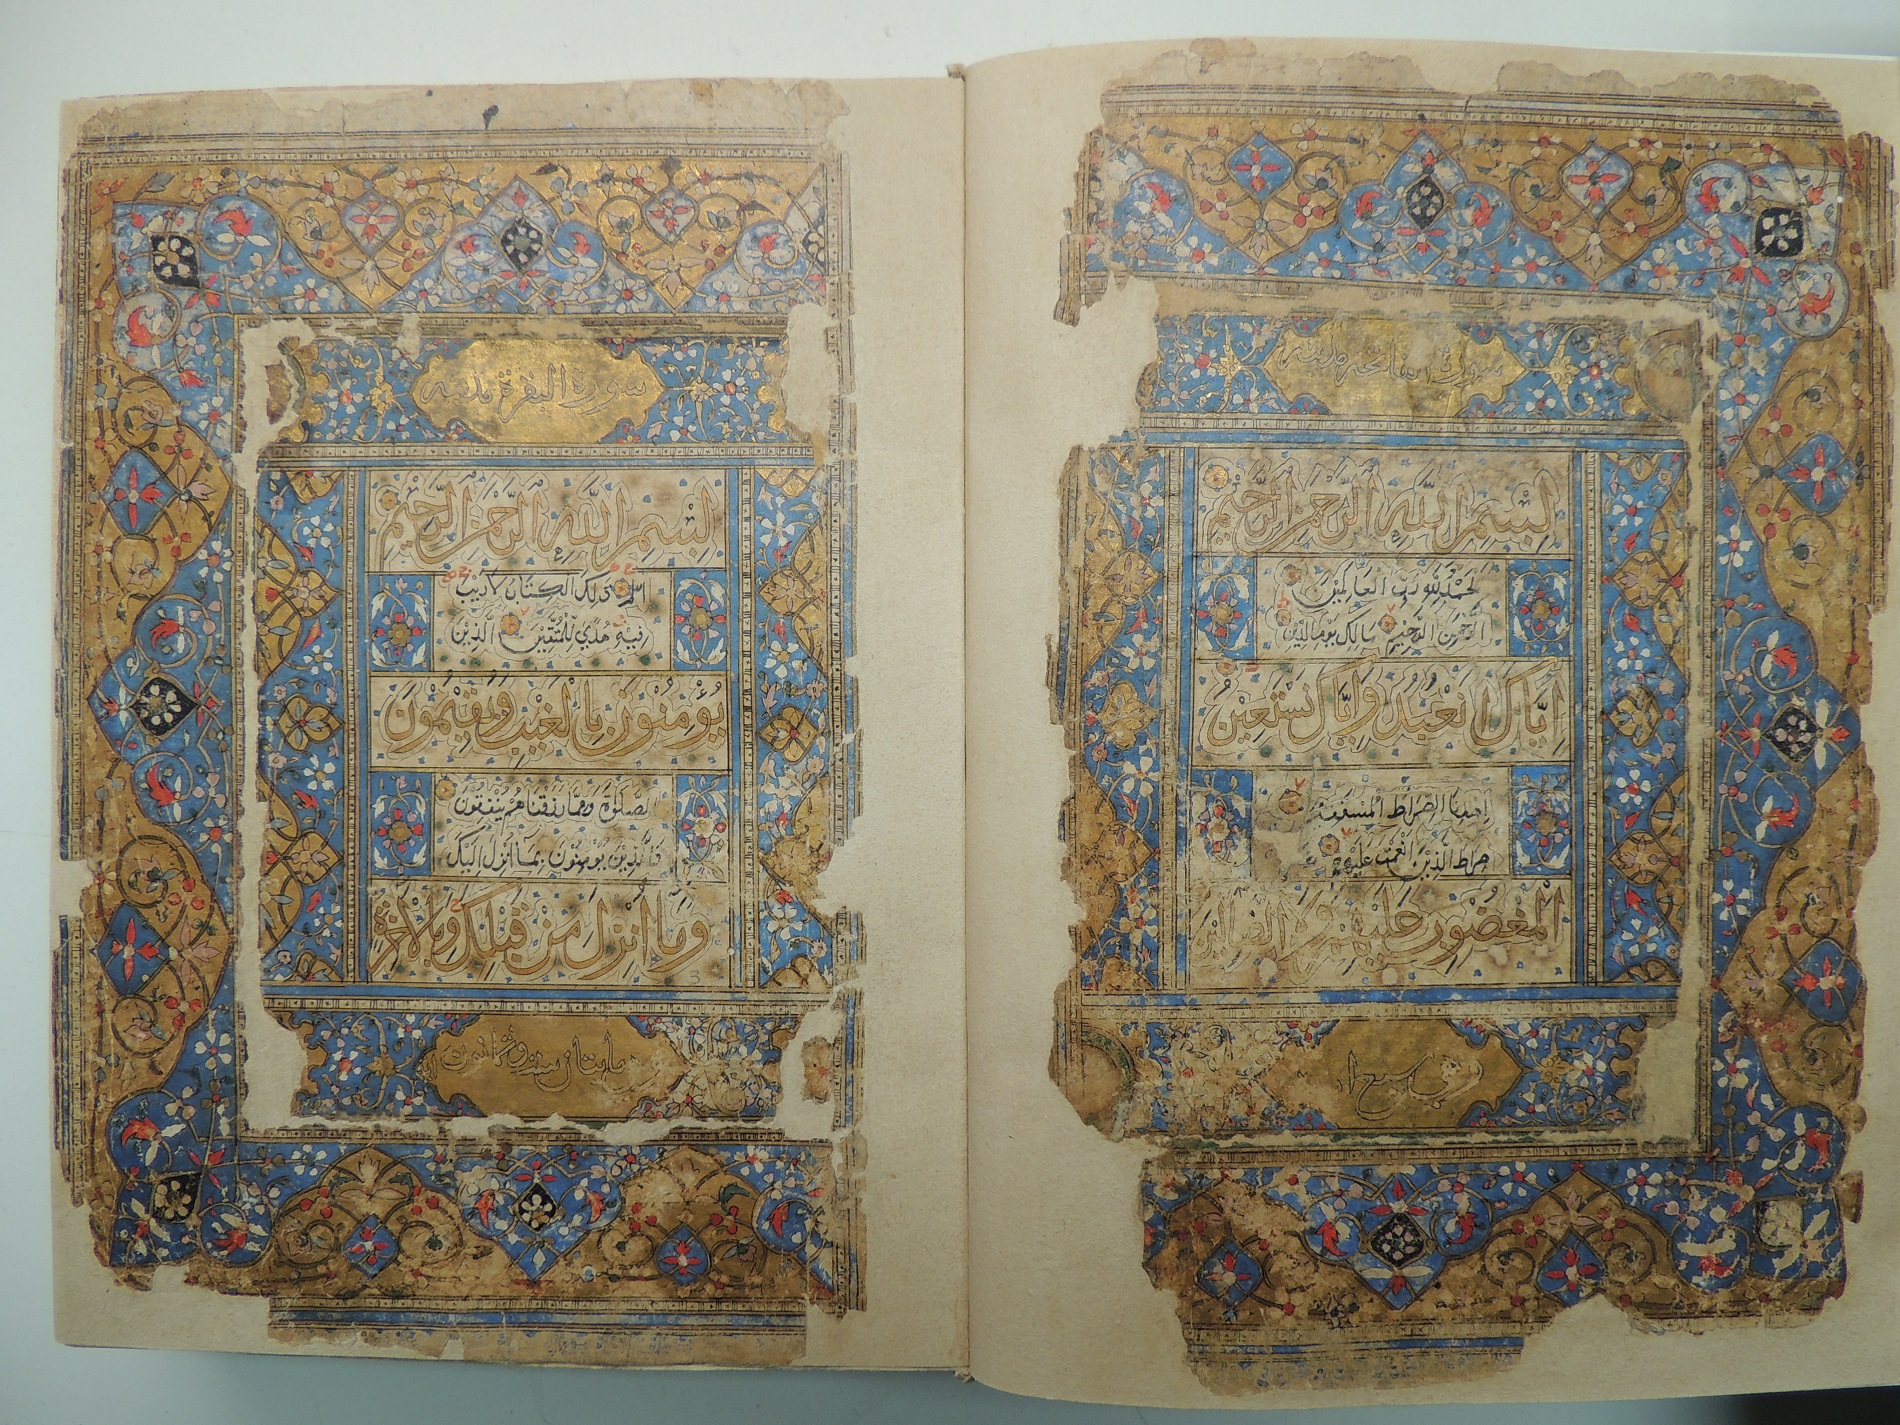 سورة الفاتحة مدنية
بِسْمِ اللَّهِ الرَّحْمٰنِ الرَّحِيْمِ
لحمد لله رب العالمين
الرحمن الرحيم مالك يوم الدين
اِيَّاكَ نَعْبُدُ وَاِيَّاكَ نَسْتَعِيْنُ
اهدنا الصراط المستقيم
صراط الذين انعمت عليهم
المغضوب عليهم ولا الضالين
سورة البقرة مدنية
بِسْمِ اللَّهِ الرَّحْمٰنِ الرَّحِيْمِ
الم ذلك الكتاب لا ريب
فيه هدي للمتقين الذين
يُؤْمِنُوْنَ بِالْغَيْبِ وَيُقِيْمُوْنَ
الصلوة ومما رزقناهم ينفقون
والذين يؤمنون بما انزل اليك
وَمَا اُنْزِلَ مِنْ قَبْلِكَ وَبِالْاٰخِرَةِ
مايتان وثمانون